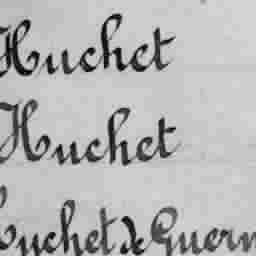 Huchet
Huchet
Huchet de